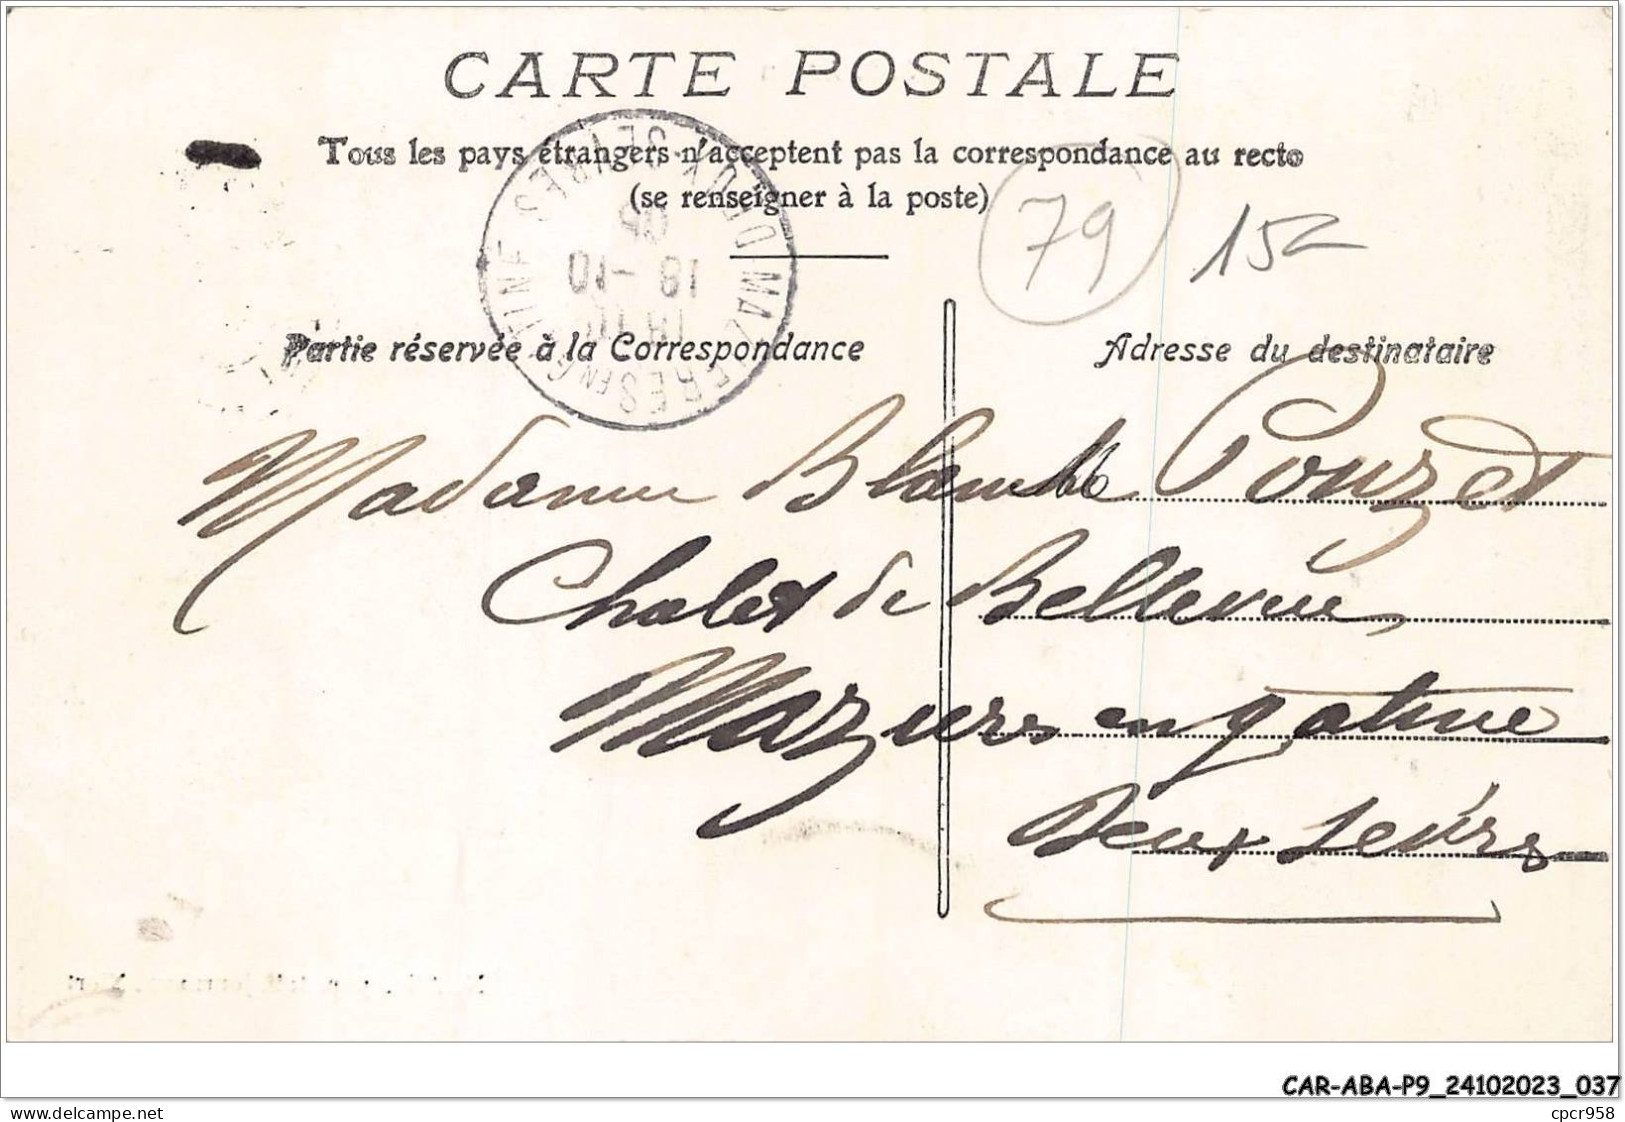 CARTE POSTALE
Tous les pays étrangers n'acceptent pas la correspondance au recto
(se renseigner à la poste)
79
15
MAZIERES EN GATINE DEUX-SEVRES
18-10
Partie réservée à la Correspondance
Adresse du destinataire
Madame Blanche Pouzet
Chalet de Bellevue,
Mazieres en gatine
Deux Sevrs
CAR-ABA-P9_24102023_037
www.delcampe.net
cpcr958